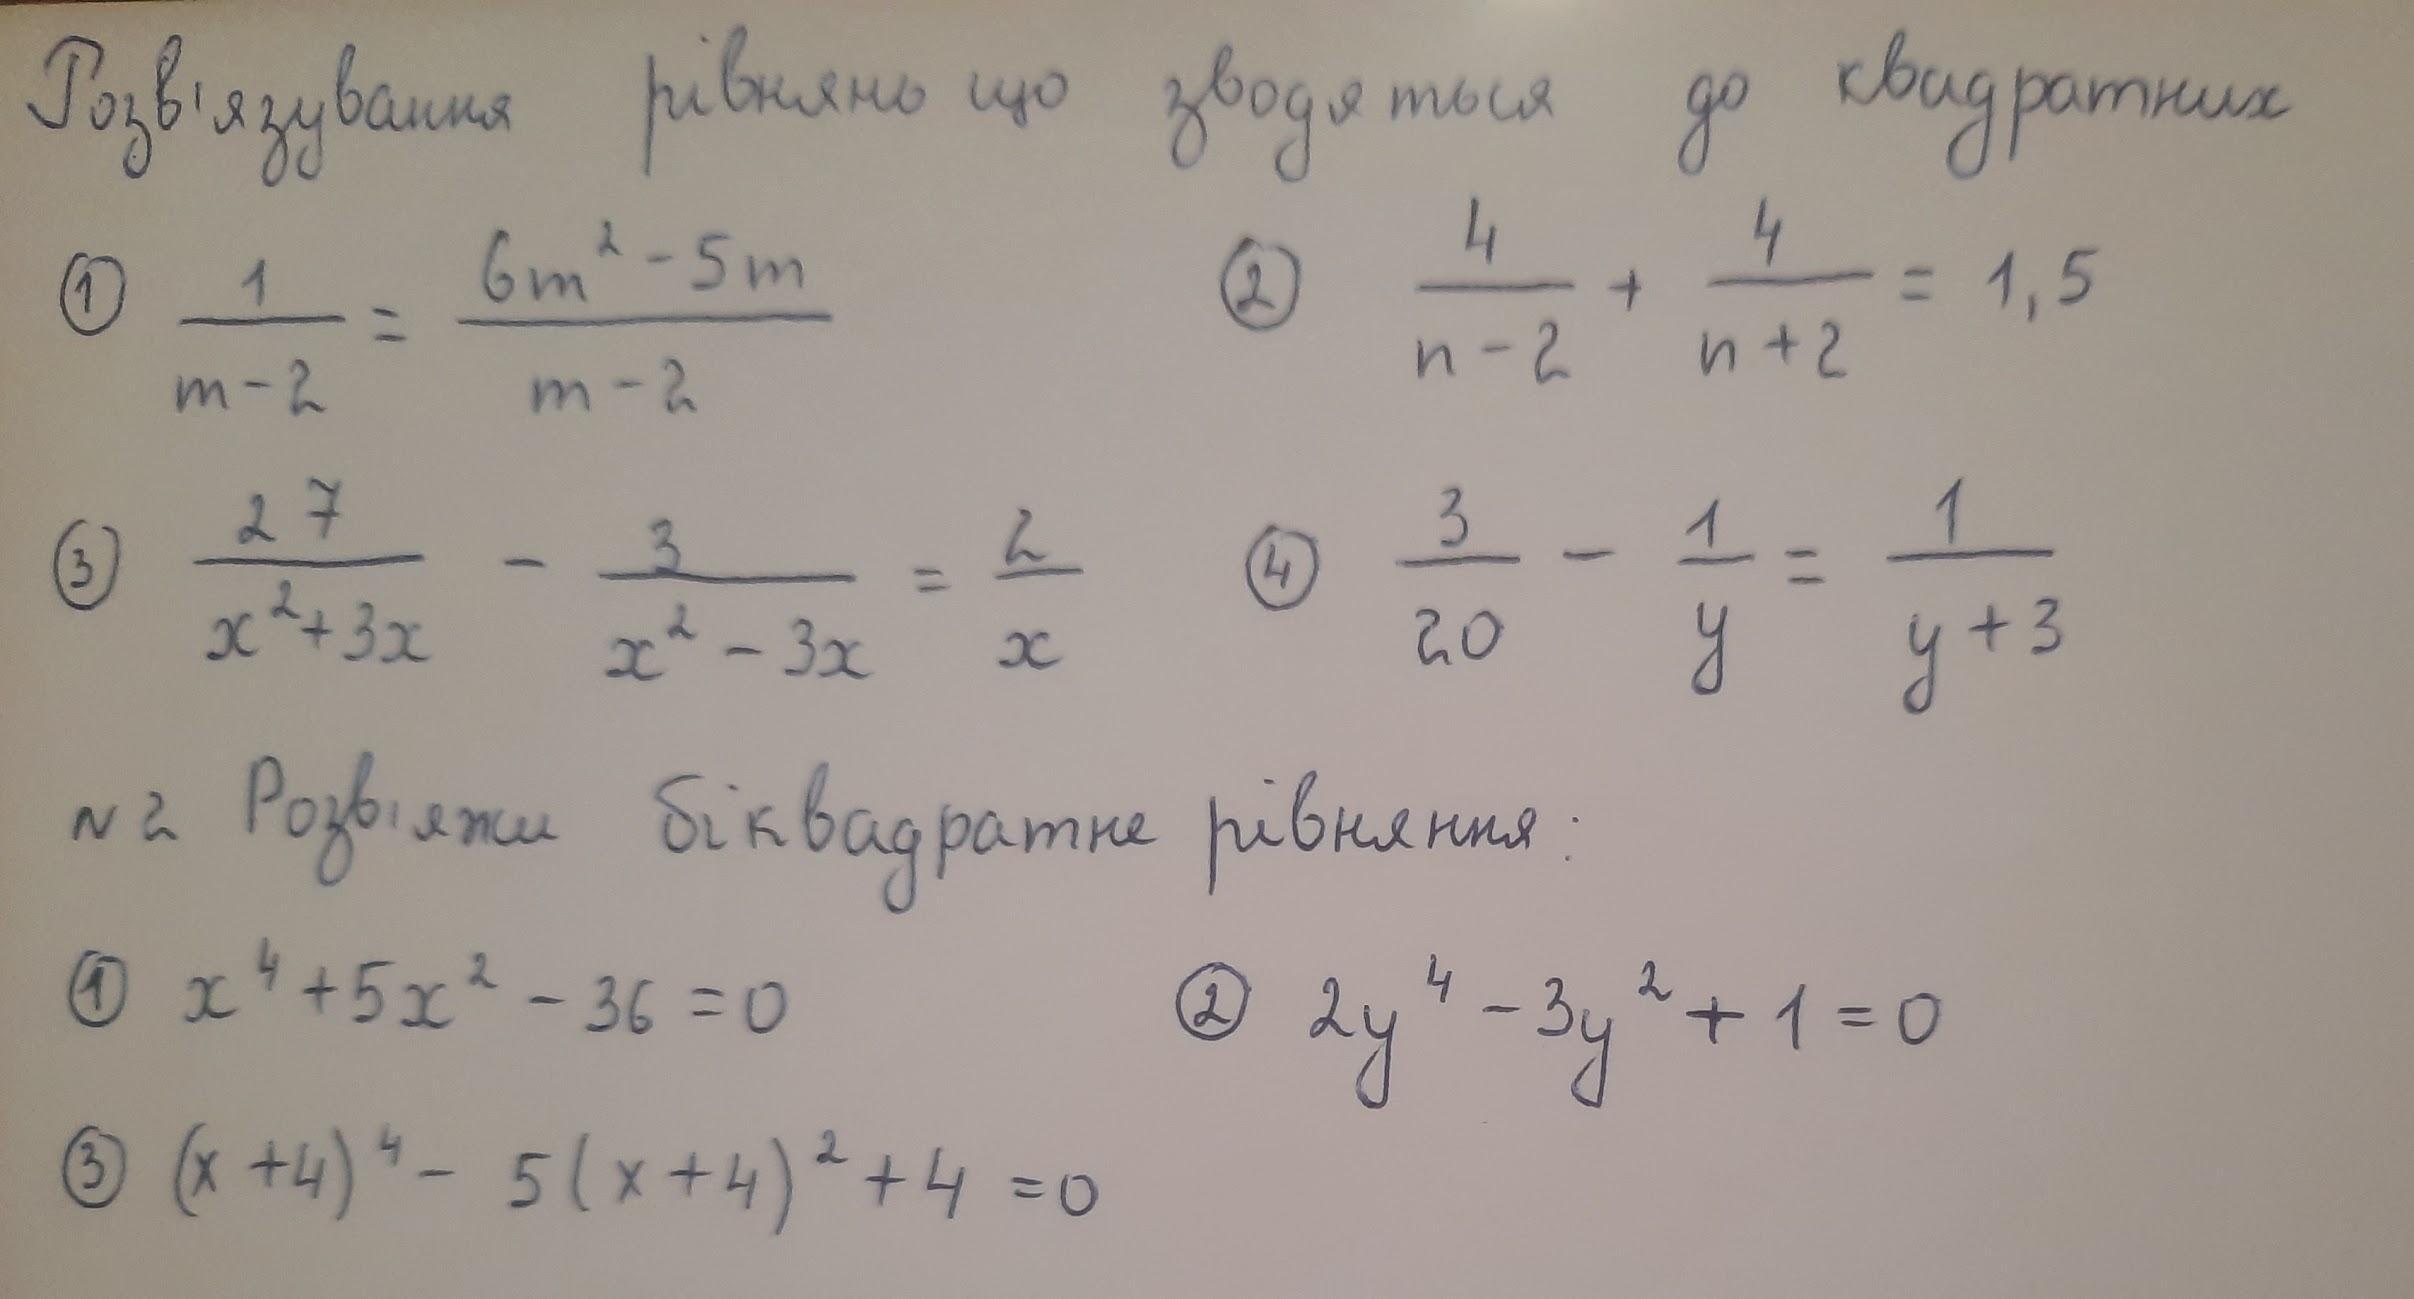 Розв'язування рівнянь що зводяться до квадратних
① 1/(m-2) = (6m² - 5m)/(m-2) ② 4/(n-2) + 4/(n+2) = 1,5
③ 27/(x²+3x) - 3/(x²-3x) = 2/x ④ 3/20 - 1/y = 1/(y+3)
N2 Розв'яжи біквадратне рівняння:
① x⁴+5x² - 36 = 0 ② 2y⁴ - 3y² + 1 = 0
③ (x+4)⁴ - 5(x+4)² + 4 = 0